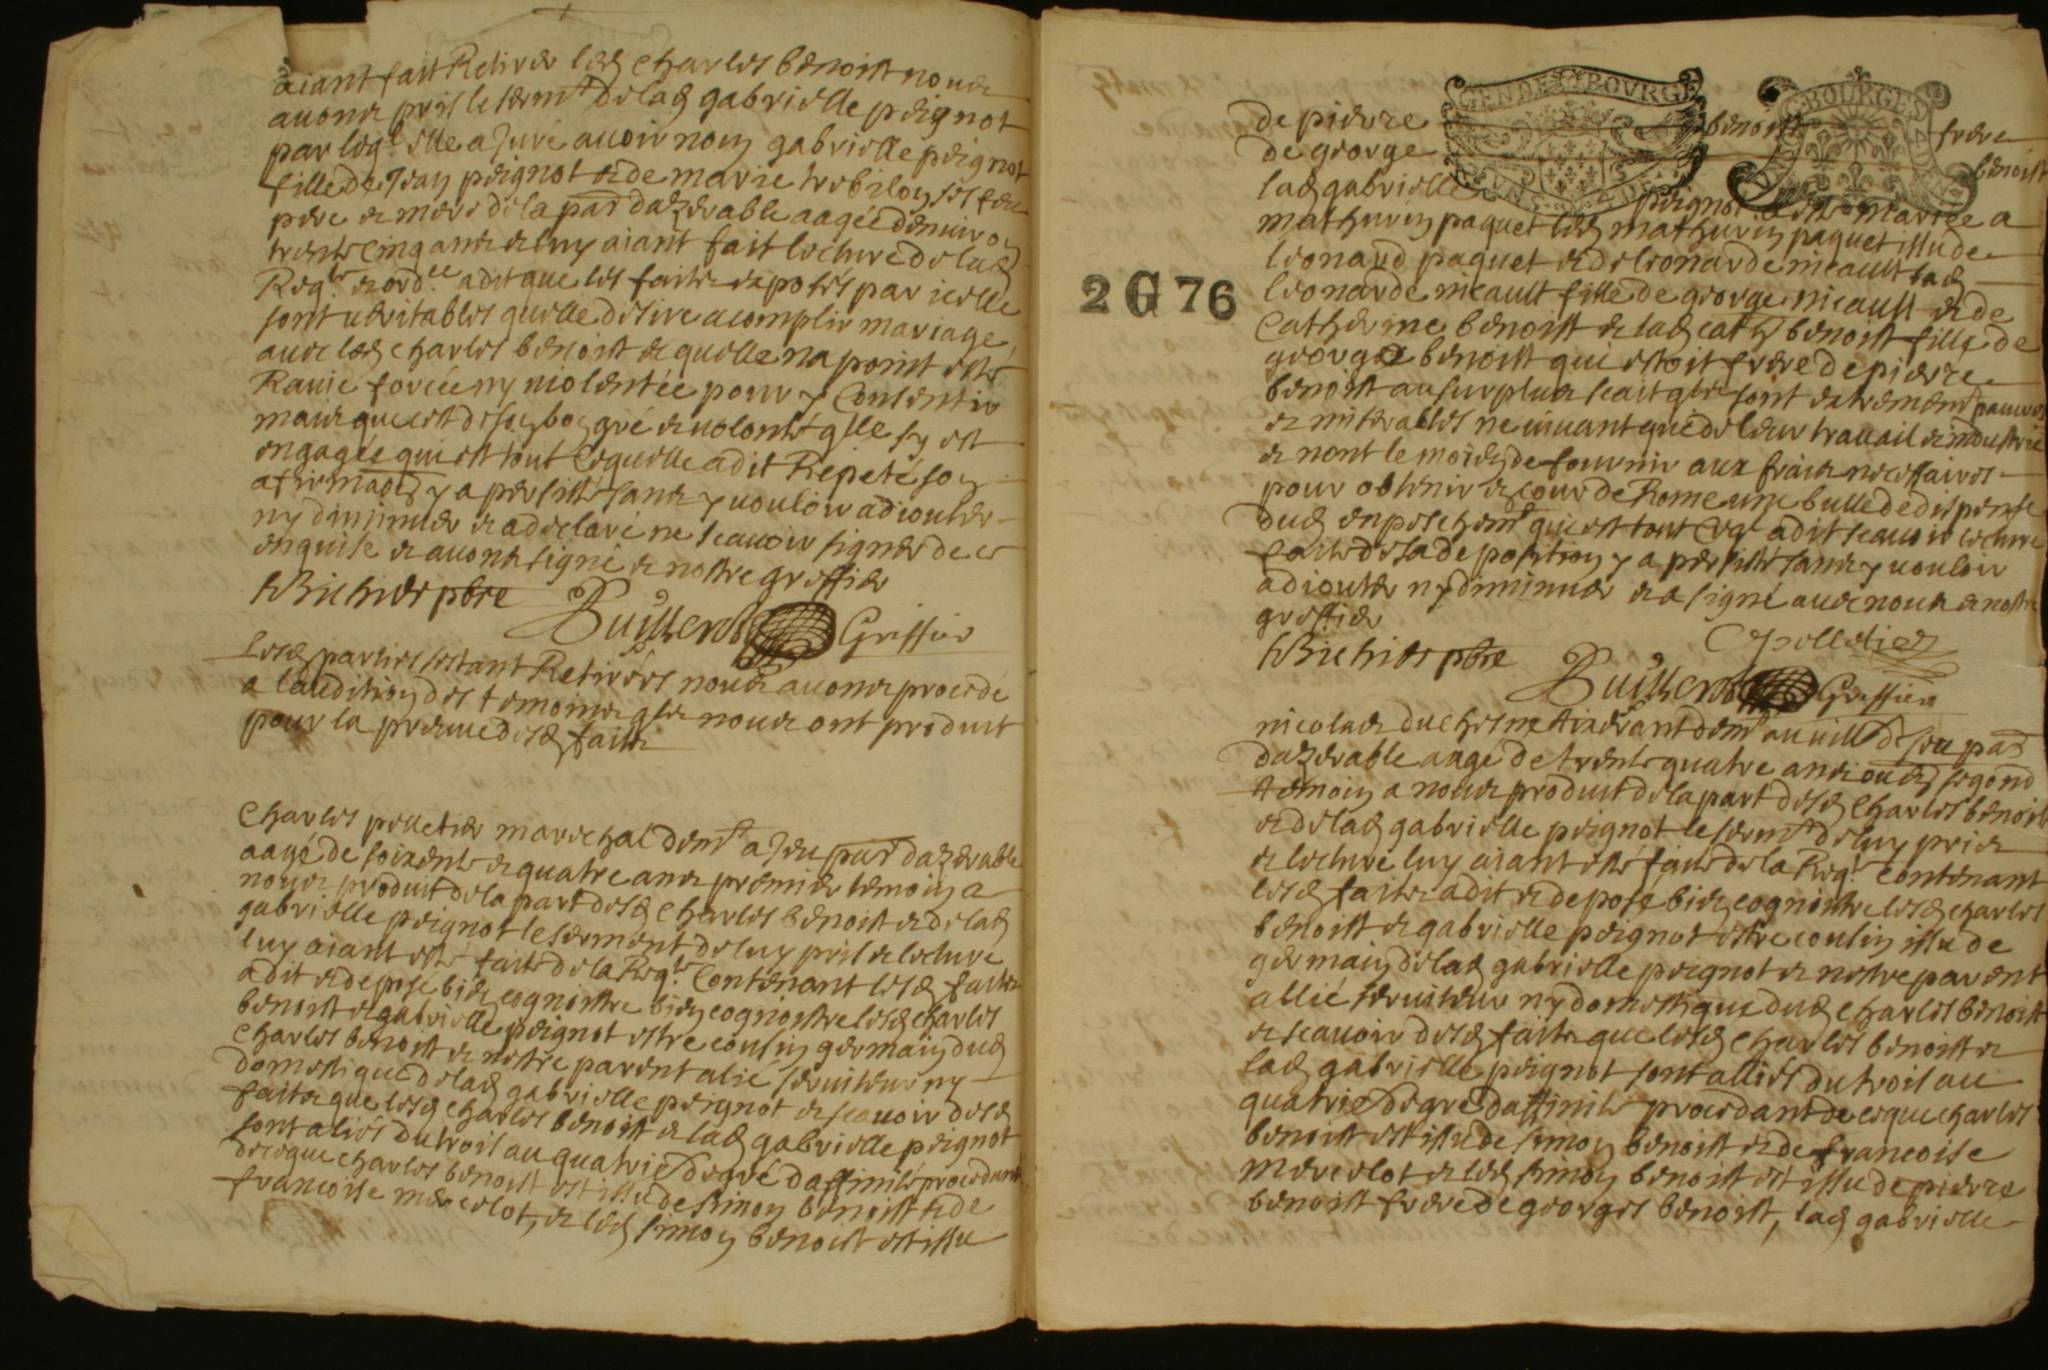 aiant fait Retirer led Charles benoist nous
avons pris le serm.t de lad gabrielle peignot
par leq.l elle a Juré avoir nom gabrielle peignot
fille de Jean peignot et de marie trebilon ses feu
pere et mere de la par dazerable aagée denviron
trente cinq ans et luy aiant fait lecture de lad
Req.te et ord.ce a dit que les faits exposés par icelle
sont veritables quelle desire acomplir mariage
avec led Charles benoist et quelle na point esté
Ravie forcée ny violentée pour y Consentir
mais que cest de son bon gré et volonté qlle sy est
engagée qui est tout Ce quelle a dit Repeté son
afirmaon y a persisté sans y vouloir adiouter
ny diminuer et a declaré ne scavoir signer de ce
enquise et avons signé et nostre greffier
pbre
Greffier
Lesd parties estant Retirées nous avons procedé
a laudition des temoins qls nous ont produit
pour la preuve desd faits
Charles pelletier marechal dem.t a Jeu par dazerable
aagé de soixente et quatre ans premier temoin a
nous produit de la part desd Charles benoist et de lad
gabrielle peignot le serment de luy pris et lecture
luy aiant esté faite de la Req.te Contenant lesd faits
a dit et deposé bien cognoistre bien cognoistre lesd Charles
benoist et gabrielle peignot estre cousin germain dud
Charles benoist et nestre parent alié serviteur ny
domestique de lad gabrielle peignot et scavoir desd
faits que lesd Charles benoist et lad gabrielle peignot
sont aliés du trois au quatrie degré daffinité procedant
de ceque Charles benoist est issu de Simon benoist et de
francoise mercelot, et led simon benoist est issu
de pierre benoist frere
de george benoist
lad gabrielle peignot a esté mariée a
mathurin paquet led mathurin paquet issu de
leonard paquet et de leonarde nicault lad
2 G 76
leonarde nicault fille de george nicault et de
Catherine benoist et lad cath benoist fille de
george benoist qui estoit frere de pierre
benoist au surplus scait qls sont extremem.t pauvres
et miserables ne vivant que de leur travail et industrie
et nont le moien de fournir aux frais necessaires
pour obtenir en cour de Rome une bulle de dispense
dud enpeschem.t qui est tout Ce a dit scavoir lecture
faite de sa deposition y a persisté sans y vouloir
adiouter ny diminuer et a signé avec nous et nostre
greffier
C pelletier
pbre
Greffier
nicolas duchesne tixerant dem.t au vill de Jeu par
dazerable aagé de trente quatre ans ou en segond
temoin a nous produit de la part desd Charles benoist
et de lad gabrielle peignot le serm.t de luy pris
et lecture luy aiant esté faite de la Req.te Contenant
lesd faits a dit et deposé bien cognoistre lesd Charles
benoist et gabrielle peignot estre cousin issu de
germain de lad gabrielle peignot et nestre parent
allié serviteur ny domestique dud Charles benoist
et scavoir desd faits que lesd Charles benoist et
lad gabrielle peignot sont alliés du trois au
quatrie degré daffinité procedant de ceque Charles
benoist est issu de simon benoist et de francoise
mercelot et led simon benoist est issu de pierre
benoist frere de georges benoist, lad gabrielle